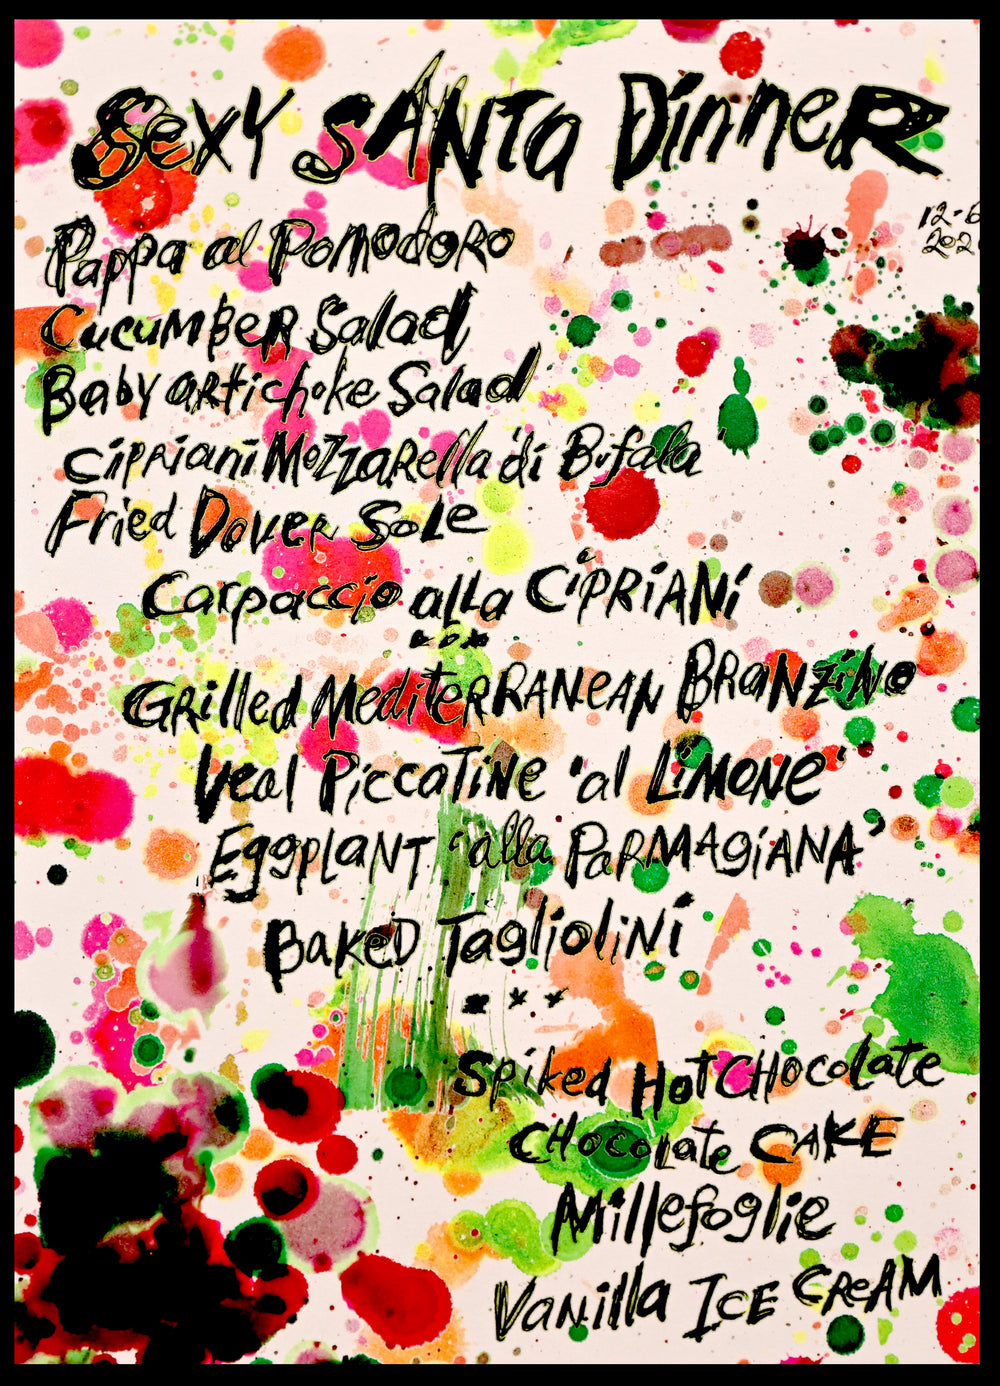 Sexy Santa Dinner
12-6
202
Pappa al Pomodoro
Cucumber Salad
Baby artichoke Salad
Cipriani Mozzarella 'di Bufala'
Fried Dover Sole
Carpaccio alla Cipriani
***
Grilled Mediterranean Branzino
Veal Piccatine 'al Limone'
Eggplant 'alla Parmagiana'
Baked Tagliolini
***
Spiked Hot Chocolate
Chocolate Cake
Millefoglie
Vanilla Ice Cream